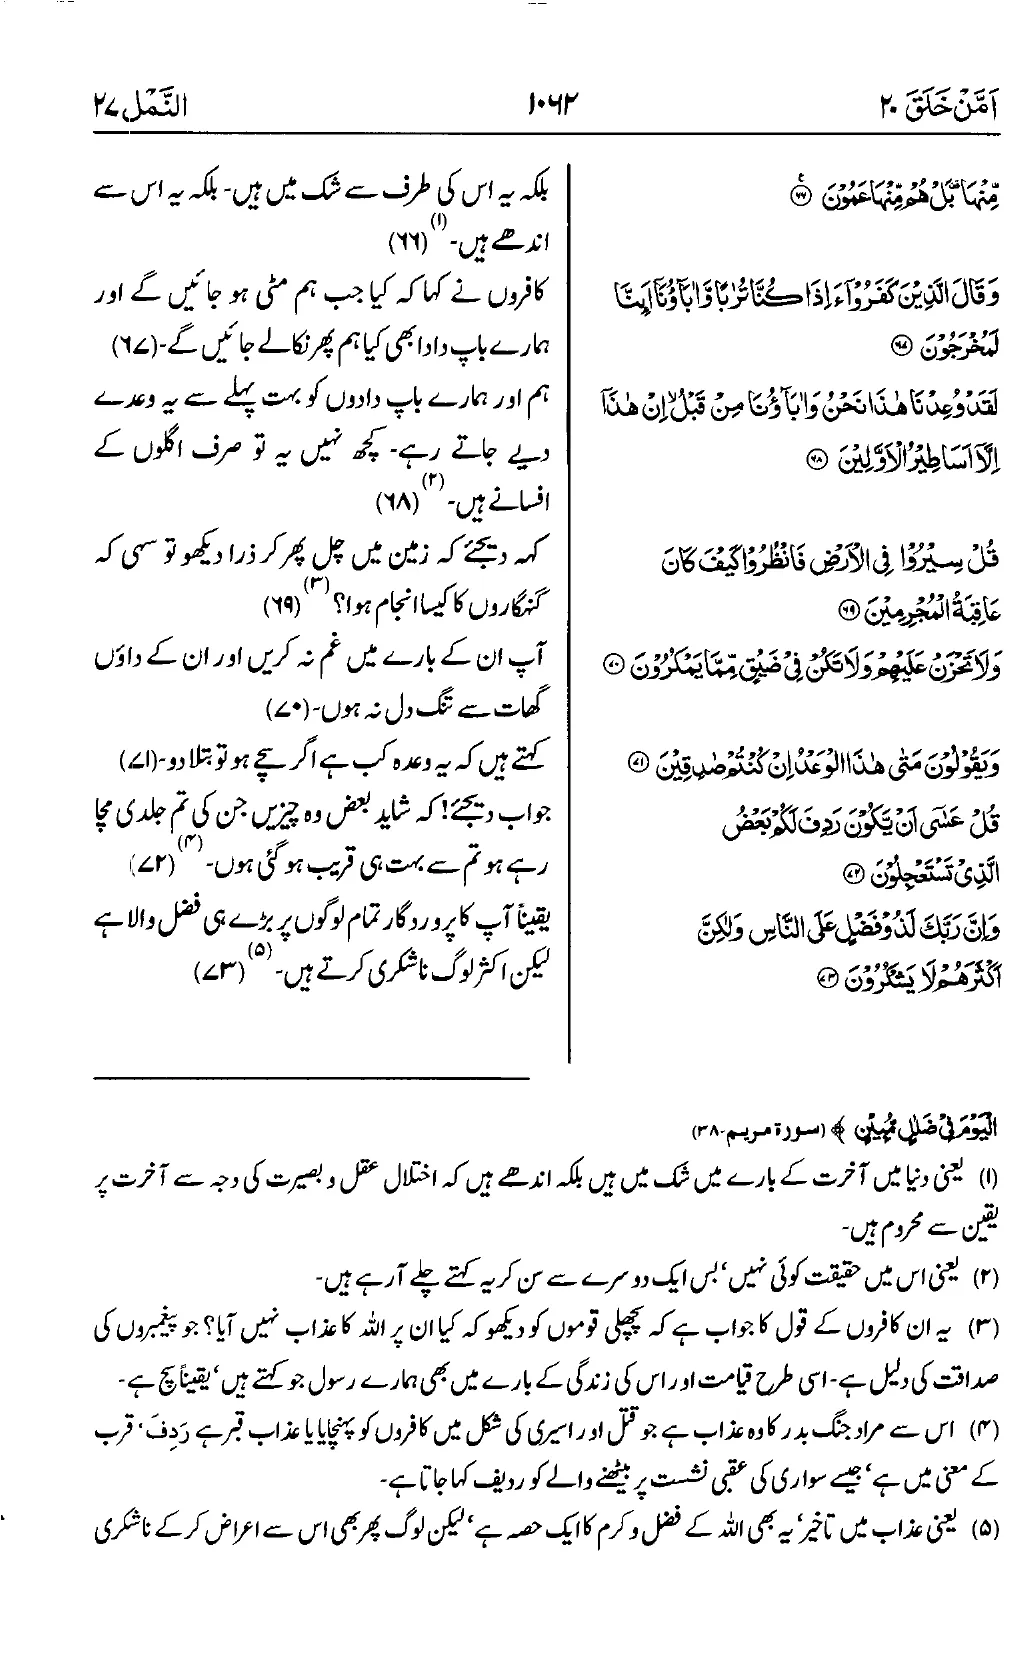 اَمَّنْ خَلَقَ ۲۰
۱۰۶۲
النَّمْل ۲۷
مِّنْهَا ۫ بَلْ هُمْ مِّنْهَا عَمُوْنَ ۝۶۶
وَقَالَ الَّذِيْنَ كَفَرُوْٓا ءَاِذَا كُنَّا تُرٰبًا وَّاٰبَآؤُنَآ اَىِٕنَّا
لَمُخْرَجُوْنَ ۝۶۷
لَقَدْ وُعِدْنَا هٰذَا نَحْنُ وَاٰبَآؤُنَا مِنْ قَبْلُ ۙ اِنْ هٰذَآ
اِلَّآ اَسَاطِيْرُ الْاَوَّلِيْنَ ۝۶۸
قُلْ سِيْرُوْا فِى الْاَرْضِ فَانْظُرُوْا كَيْفَ كَانَ
عَاقِبَةُ الْمُجْرِمِيْنَ ۝۶۹
وَلَا تَحْزَنْ عَلَيْهِمْ وَلَا تَكُنْ فِىْ ضَيْقٍ مِّمَّا يَمْكُرُوْنَ ۝۷۰
وَيَقُوْلُوْنَ مَتٰى هٰذَا الْوَعْدُ اِنْ كُنْتُمْ صٰدِقِيْنَ ۝۷۱
قُلْ عَسٰٓى اَنْ يَّكُوْنَ رَدِفَ لَكُمْ بَعْضُ
الَّذِىْ تَسْتَعْجِلُوْنَ ۝۷۲
وَاِنَّ رَبَّكَ لَذُوْ فَضْلٍ عَلَى النَّاسِ وَلٰكِنَّ
اَكْثَرَهُمْ لَا يَشْكُرُوْنَ ۝۷۳
بلکہ یہ اس کی طرف سے شک میں ہیں۔ بلکہ یہ اس سے
اندھے ہیں۔(۱) (۶۶)
کافروں نے کہا کہ کیا جب ہم مٹی ہو جائیں گے اور
ہمارے باپ دادا بھی کیا ہم پھر نکالے جائیں گے۔ (۶۷)
ہم اور ہمارے باپ دادوں کو بہت پہلے سے یہ وعدے
دیے جاتے رہے۔ کچھ نہیں یہ تو صرف اگلوں کے
افسانے ہیں۔(۲) (۶۸)
کہہ دیجئے کہ زمین میں چل پھر کر ذرا دیکھو تو سہی کہ
گنہگاروں کا کیسا انجام ہوا؟(۳) (۶۹)
آپ ان کے بارے میں غم نہ کریں اور ان کے داؤں
گھات سے تنگ دل نہ ہوں۔ (۷۰)
کہتے ہیں کہ یہ وعدہ کب ہے اگر سچے ہو تو بتلا دو۔ (۷۱)
جواب دیجئے! کہ شاید بعض وہ چیزیں جن کی تم جلدی مچا
رہے ہو تم سے بہت ہی قریب ہو گئی ہوں۔(۴) (۷۲)
یقیناً آپ کا پروردگار تمام لوگوں پر بڑے ہی فضل والا ہے
لیکن اکثر لوگ ناشکری کرتے ہیں۔(۵) (۷۳)
الْيَوْمَ فِىْ ضَلٰلٍ مُّبِيْنٍ﴾ (سورۃ مریم۔۳۸)
(۱) یعنی دنیا میں آخرت کے بارے میں شک میں ہیں بلکہ اندھے ہیں کہ اختلال عقل و بصیرت کی وجہ سے آخرت پر
یقین سے محروم ہیں۔
(۲) یعنی اس میں حقیقت کوئی نہیں، بس ایک دوسرے سے سن کر یہ کہتے چلے آرہے ہیں۔
(۳) یہ ان کافروں کے قول کا جواب ہے کہ پچھلی قوموں کو دیکھو کہ کیا ان پر اللہ کا عذاب نہیں آیا؟ جو پیغمبروں کی
صداقت کی دلیل ہے۔ اسی طرح قیامت اور اس کی زندگی کے بارے میں بھی ہمارے رسول جو کہتے ہیں، یقیناً سچ ہے۔
(۴) اس سے مراد جنگ بدر کا وہ عذاب ہے جو قتل اور اسیری کی شکل میں کافروں کو پہنچا یا یا عذاب قبر ہے رَدِفَ، قرب
کے معنی میں ہے، جیسے سواری کی عقبی نشست پر بیٹھنے والے کو ردیف کہا جاتا ہے۔
(۵) یعنی عذاب میں تاخیر، یہ بھی اللہ کے فضل و کرم کا ایک حصہ ہے، لیکن لوگ پھر بھی اس سے اعراض کر کے ناشکری